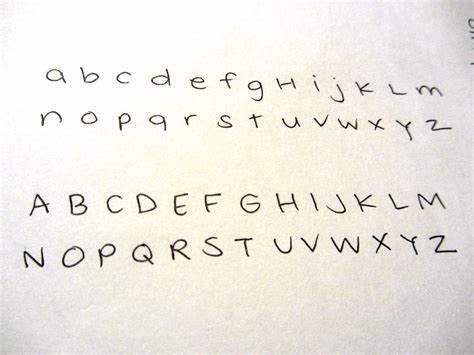 a b c d e f g H i j K L m
n o p q r s t u v w x y z
A B C D E F G H I J K L M
N O P Q R S T U V W X Y Z